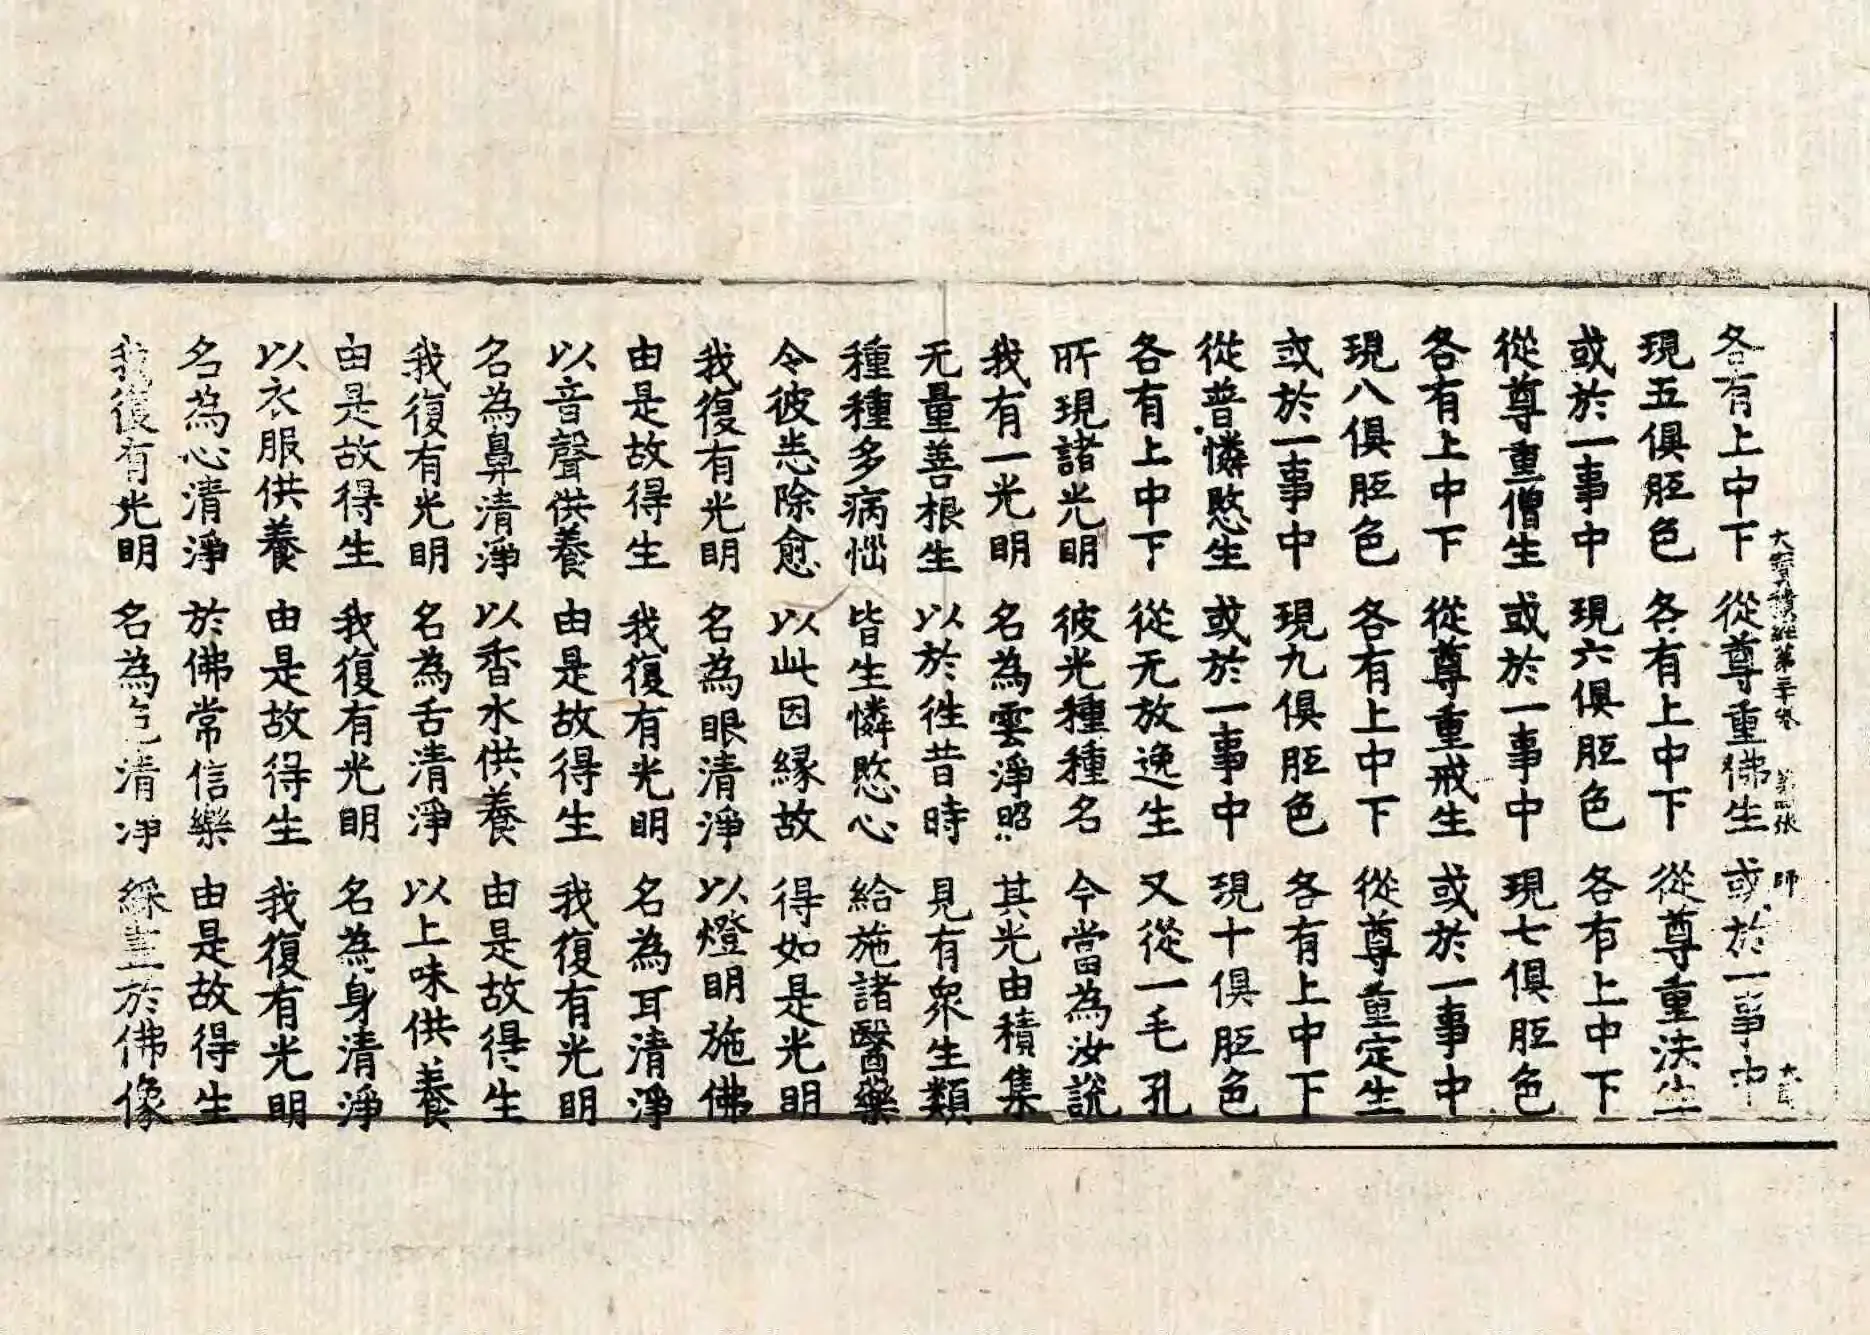 各有上中下 從尊重佛生 或於一事中
大寶積經第三十卷 第四張 師
現五俱胝色 各有上中下 從尊重法生
或於一事中 現六俱胝色 各有上中下
從尊重僧生 或於一事中 現七俱胝色
各有上中下 從尊重戒生 或於一事中
現八俱胝色 各有上中下 從尊重定生
或於一事中 現九俱胝色 各有上中下
從普憐愍生 或於一事中 現十俱胝色
各有上中下 從无放逸生 又從一毛孔
所現諸光明 彼光種種名 今當為汝說
我有一光明 名為雲淨照 其光由積集
无量善根生 以於徃昔時 見有衆生類
種種多病惱 皆生憐愍心 給施諸醫藥
令彼恙除愈 以此因緣故 得如是光明
我復有光明 名為眼清淨 以燈明施佛
由是故得生 我復有光明 名為耳清淨
以音聲供養 由是故得生 我復有光明
名為鼻清淨 以香水供養 由是故得生
我復有光明 名為舌清淨 以上味供養
由是故得生 我復有光明 名為身清淨
以衣服供養 由是故得生 我復有光明
名為心清淨 於佛常信樂 由是故得生
我復有光明 名為色清淨 綵畫於佛像